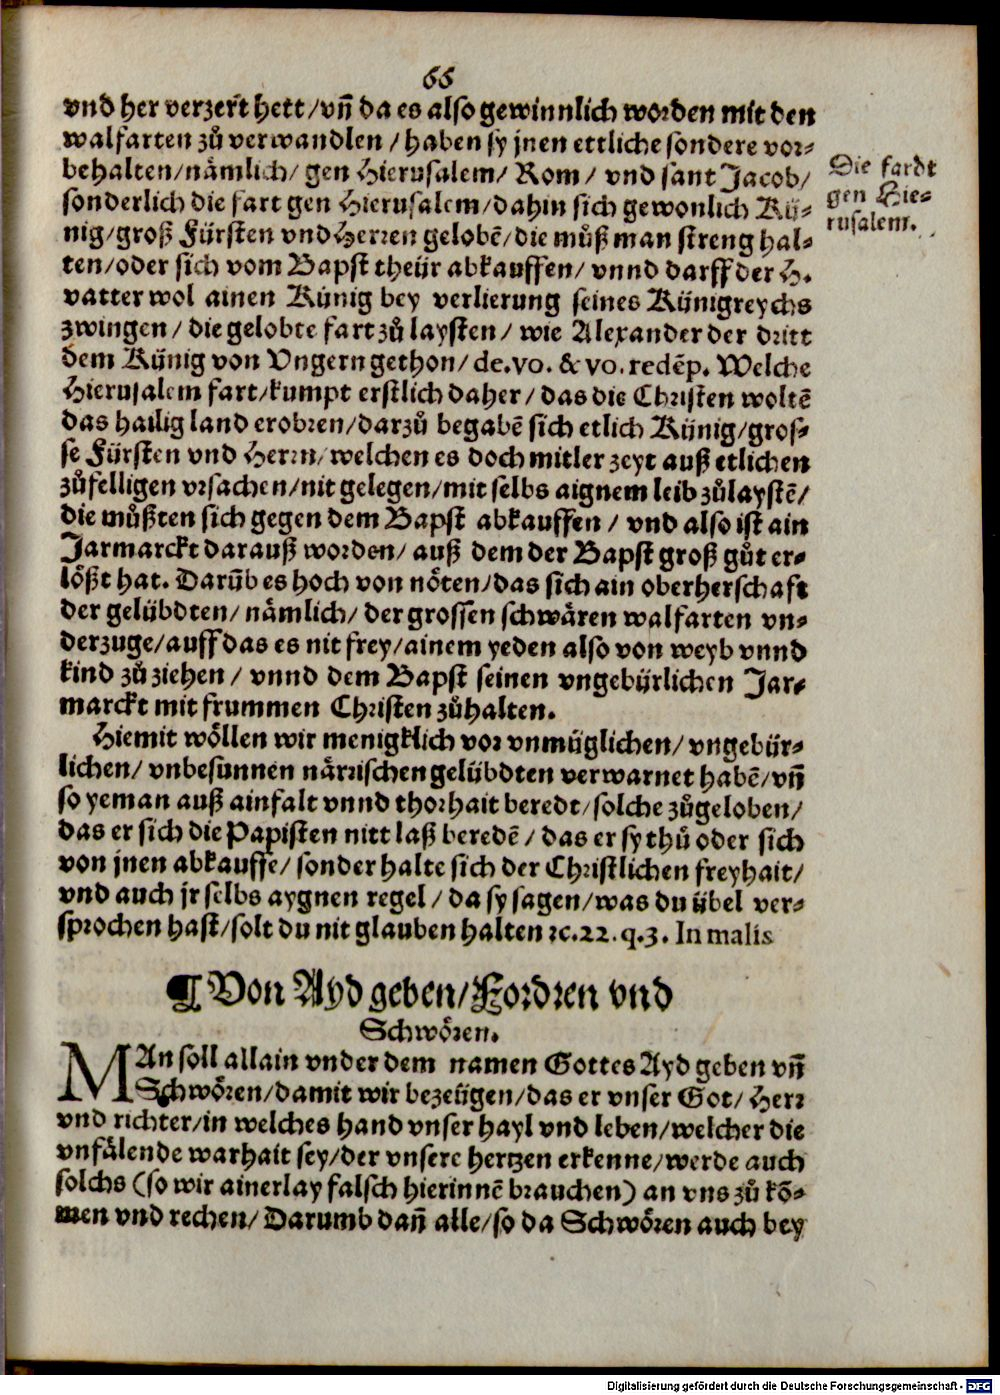 66
vnd her verzert hett/vñ da es also gewinnlich worden mit den
walfarten zů verwandlen/haben sy jnen ettliche sondere vor⸗
behalten/nämlich/ gen Hierusalem/ Rom/ vnd sant Jacob/
sonderlich die fart gen Hierusalem/dahin sich gewonlich Kü⸗
nig/groß Fürsten vnd Herren gelobẽ/die můß man streng hal⸗
ten/oder sich vom Bapst theür abkauffen/ vnnd darff der H.
vatter wol ainen Künig bey verlierung seines Künigreychs
zwingen/ die gelobte fart zů laysten/ wie Alexander der dritt
dem Künig von Vngern gethon/ de.vo. & vo. redẽp. Welche
Hierusalem fart/kumpt erstlich daher/ das die Christen woltẽ
das hailig land erobren/darzů begabẽ sich etlich Künig/gros⸗
se Fürsten vnd Herrn/welchen es doch mitler zeyt auß etlichen
zůfelligen vrsachen/nit gelegen/mit selbs aignem leib zůlaystẽ/
die můßten sich gegen dem Bapst abkauffen/ vnd also ist ain
Jarmarckt darauß worden/ auß dem der Bapst groß gůt er⸗
lößt hat. Darũb es hoch von nöten/das sich ain oberherschaft
der gelübdten/ nämlich/ der grossen schwären walfarten vn⸗
derzuge/auff das es nit frey/ainem yeden also von weyb vnnd
kind zů ziehen/ vnnd dem Bapst seinen vngebürlichen Jar⸗
marckt mit frummen Christen zůhalten.
Hiemit wöllen wir menigklich vor vnmüglichen/ vngebür⸗
lichen/ vnbesunnen närrischen gelübdten verwarnet habẽ/vñ
so yeman auß ainfalt vnnd thorhait beredt/solche zůgeloben/
das er sich die Papisten nitt laß beredẽ/ das er sy thů oder sich
von jnen abkauffe/ sonder halte sich der Christlichen freyhait/
vnd auch jr selbs aygnen regel/ da sy sagen/was du übel ver⸗
sprochen hast/solt du nit glauben halten ꝛc.22.q.3. In malis
Die fardt
gen Hie⸗
rusalem.
¶ Von Ayd geben/Fordren vnd
Schwören.
MAn soll allain vnder dem namen Gottes Ayd geben vñ
Schwören/damit wir bezeügen/das er vnser Got/ Herr
vnd richter/in welches hand vnser hayl vnd leben/welcher die
vnfälende warhait sey/der vnsere hertzen erkenne/werde auch
solchs (so wir ainerlay falsch hierinnẽ brauchen) an vns zů kõ⸗
men vnd rechen/ Darumb dañ alle/so da Schwören auch bey
Digitalisierung gefördert durch die Deutsche Forschungsgemeinschaft - DFG